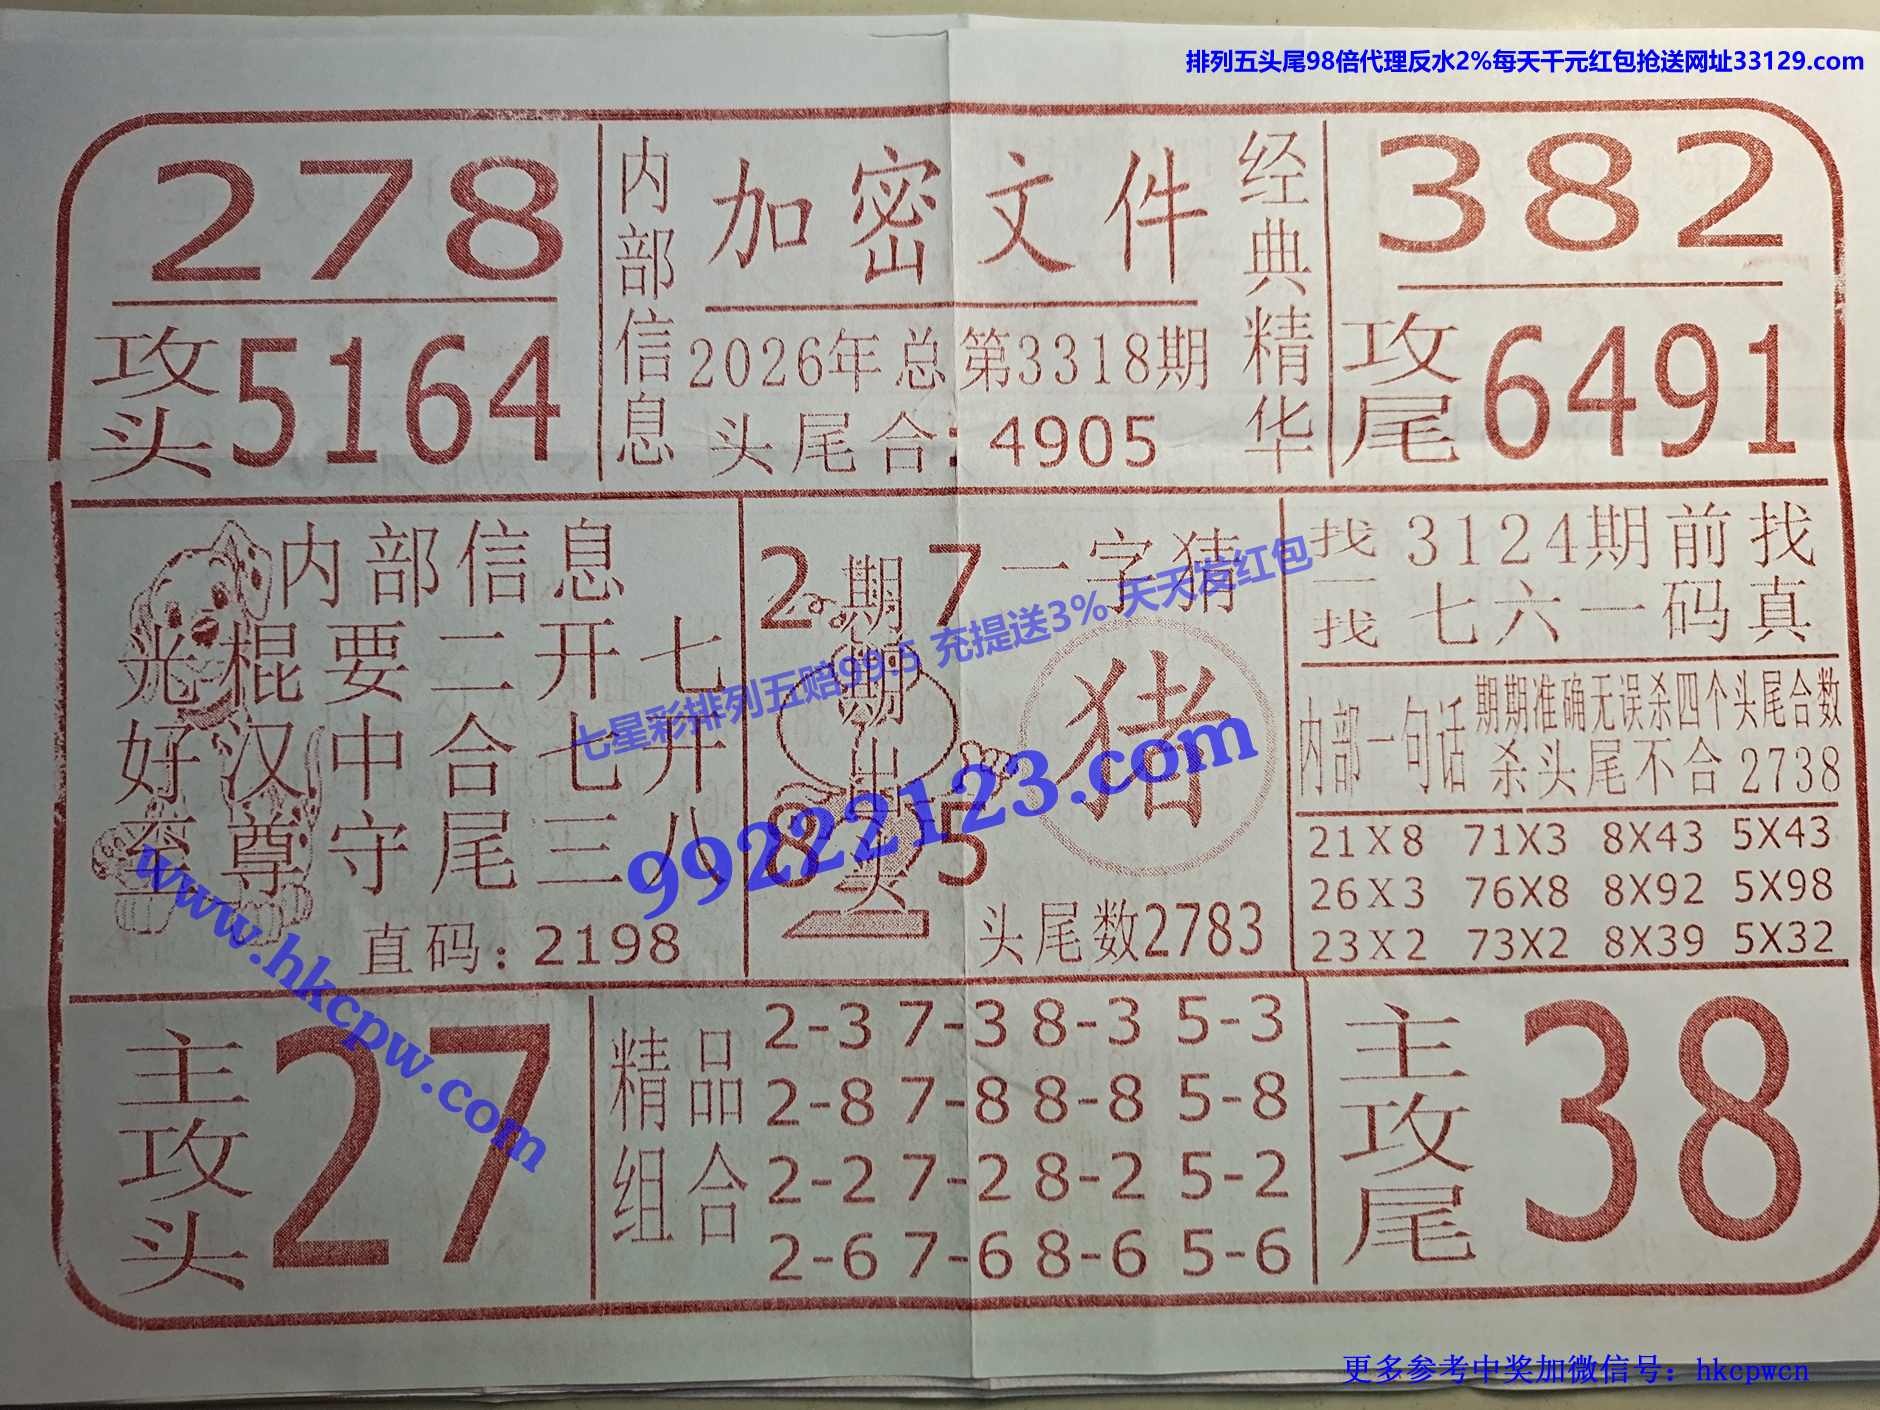 排列五头尾98倍代理反水2%每天千元红包抢送网址33129.com
278
攻头5164
内部信息
加密文件
2026年总第3318期
头尾合：4905
经典精华
382
攻尾6491
内部信息
光棍要二开七
好汉中合七开
至尊守尾三八
直码：2198
2 7
8 5
期期出大
一字猜
猪
头尾数2783
找一找
3124期前找
七六一码真
内部一句话
期期准确无误杀四个头尾合数
杀头尾不合2738
21X8 71X3 8X43 5X43
26X3 76X8 8X92 5X98
23X2 73X2 8X39 5X32
七星彩排列五赔99.5 充提送3% 天天发红包
99222123.com
www.hkcpw.com
主攻头
27
精品组合
2-3 7-3 8-3 5-3
2-8 7-8 8-8 5-8
2-2 7-2 8-2 5-2
2-6 7-6 8-6 5-6
主攻尾
38
更多参考中奖加微信号：hkcpwcn